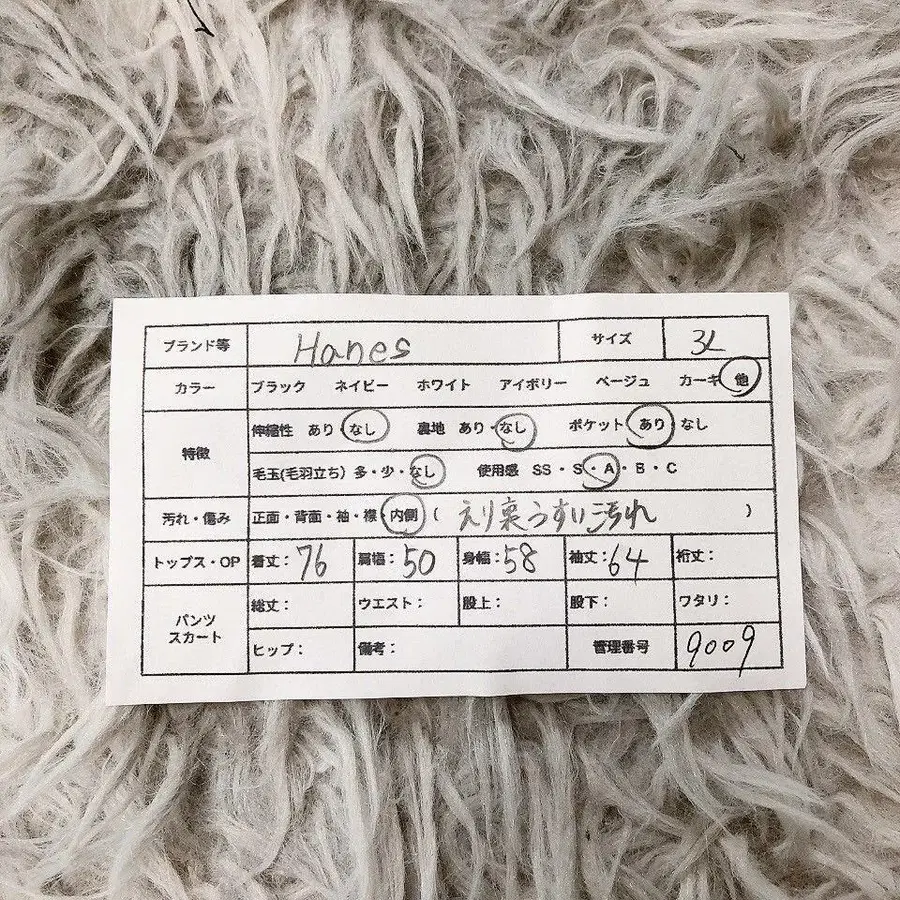 ブランド等 Hanes サイズ 3L
カラー ブラック ネイビー ホワイト アイボリー ベージュ カーキ 他
特徴
伸縮性 あり・なし 裏地 あり・なし ポケット あり なし
毛玉(毛羽立ち) 多・少・なし 使用感 SS・S・A・B・C
汚れ・傷み 正面・背面・袖・襟・内側 ( えり裏うすい汚れ )
トップス・OP 着丈: 76 肩幅: 50 身幅: 58 袖丈: 64 裄丈:
パンツ
スカート
総丈: ウエスト: 股上: 股下: ワタリ:
ヒップ: 備考: 管理番号 9009